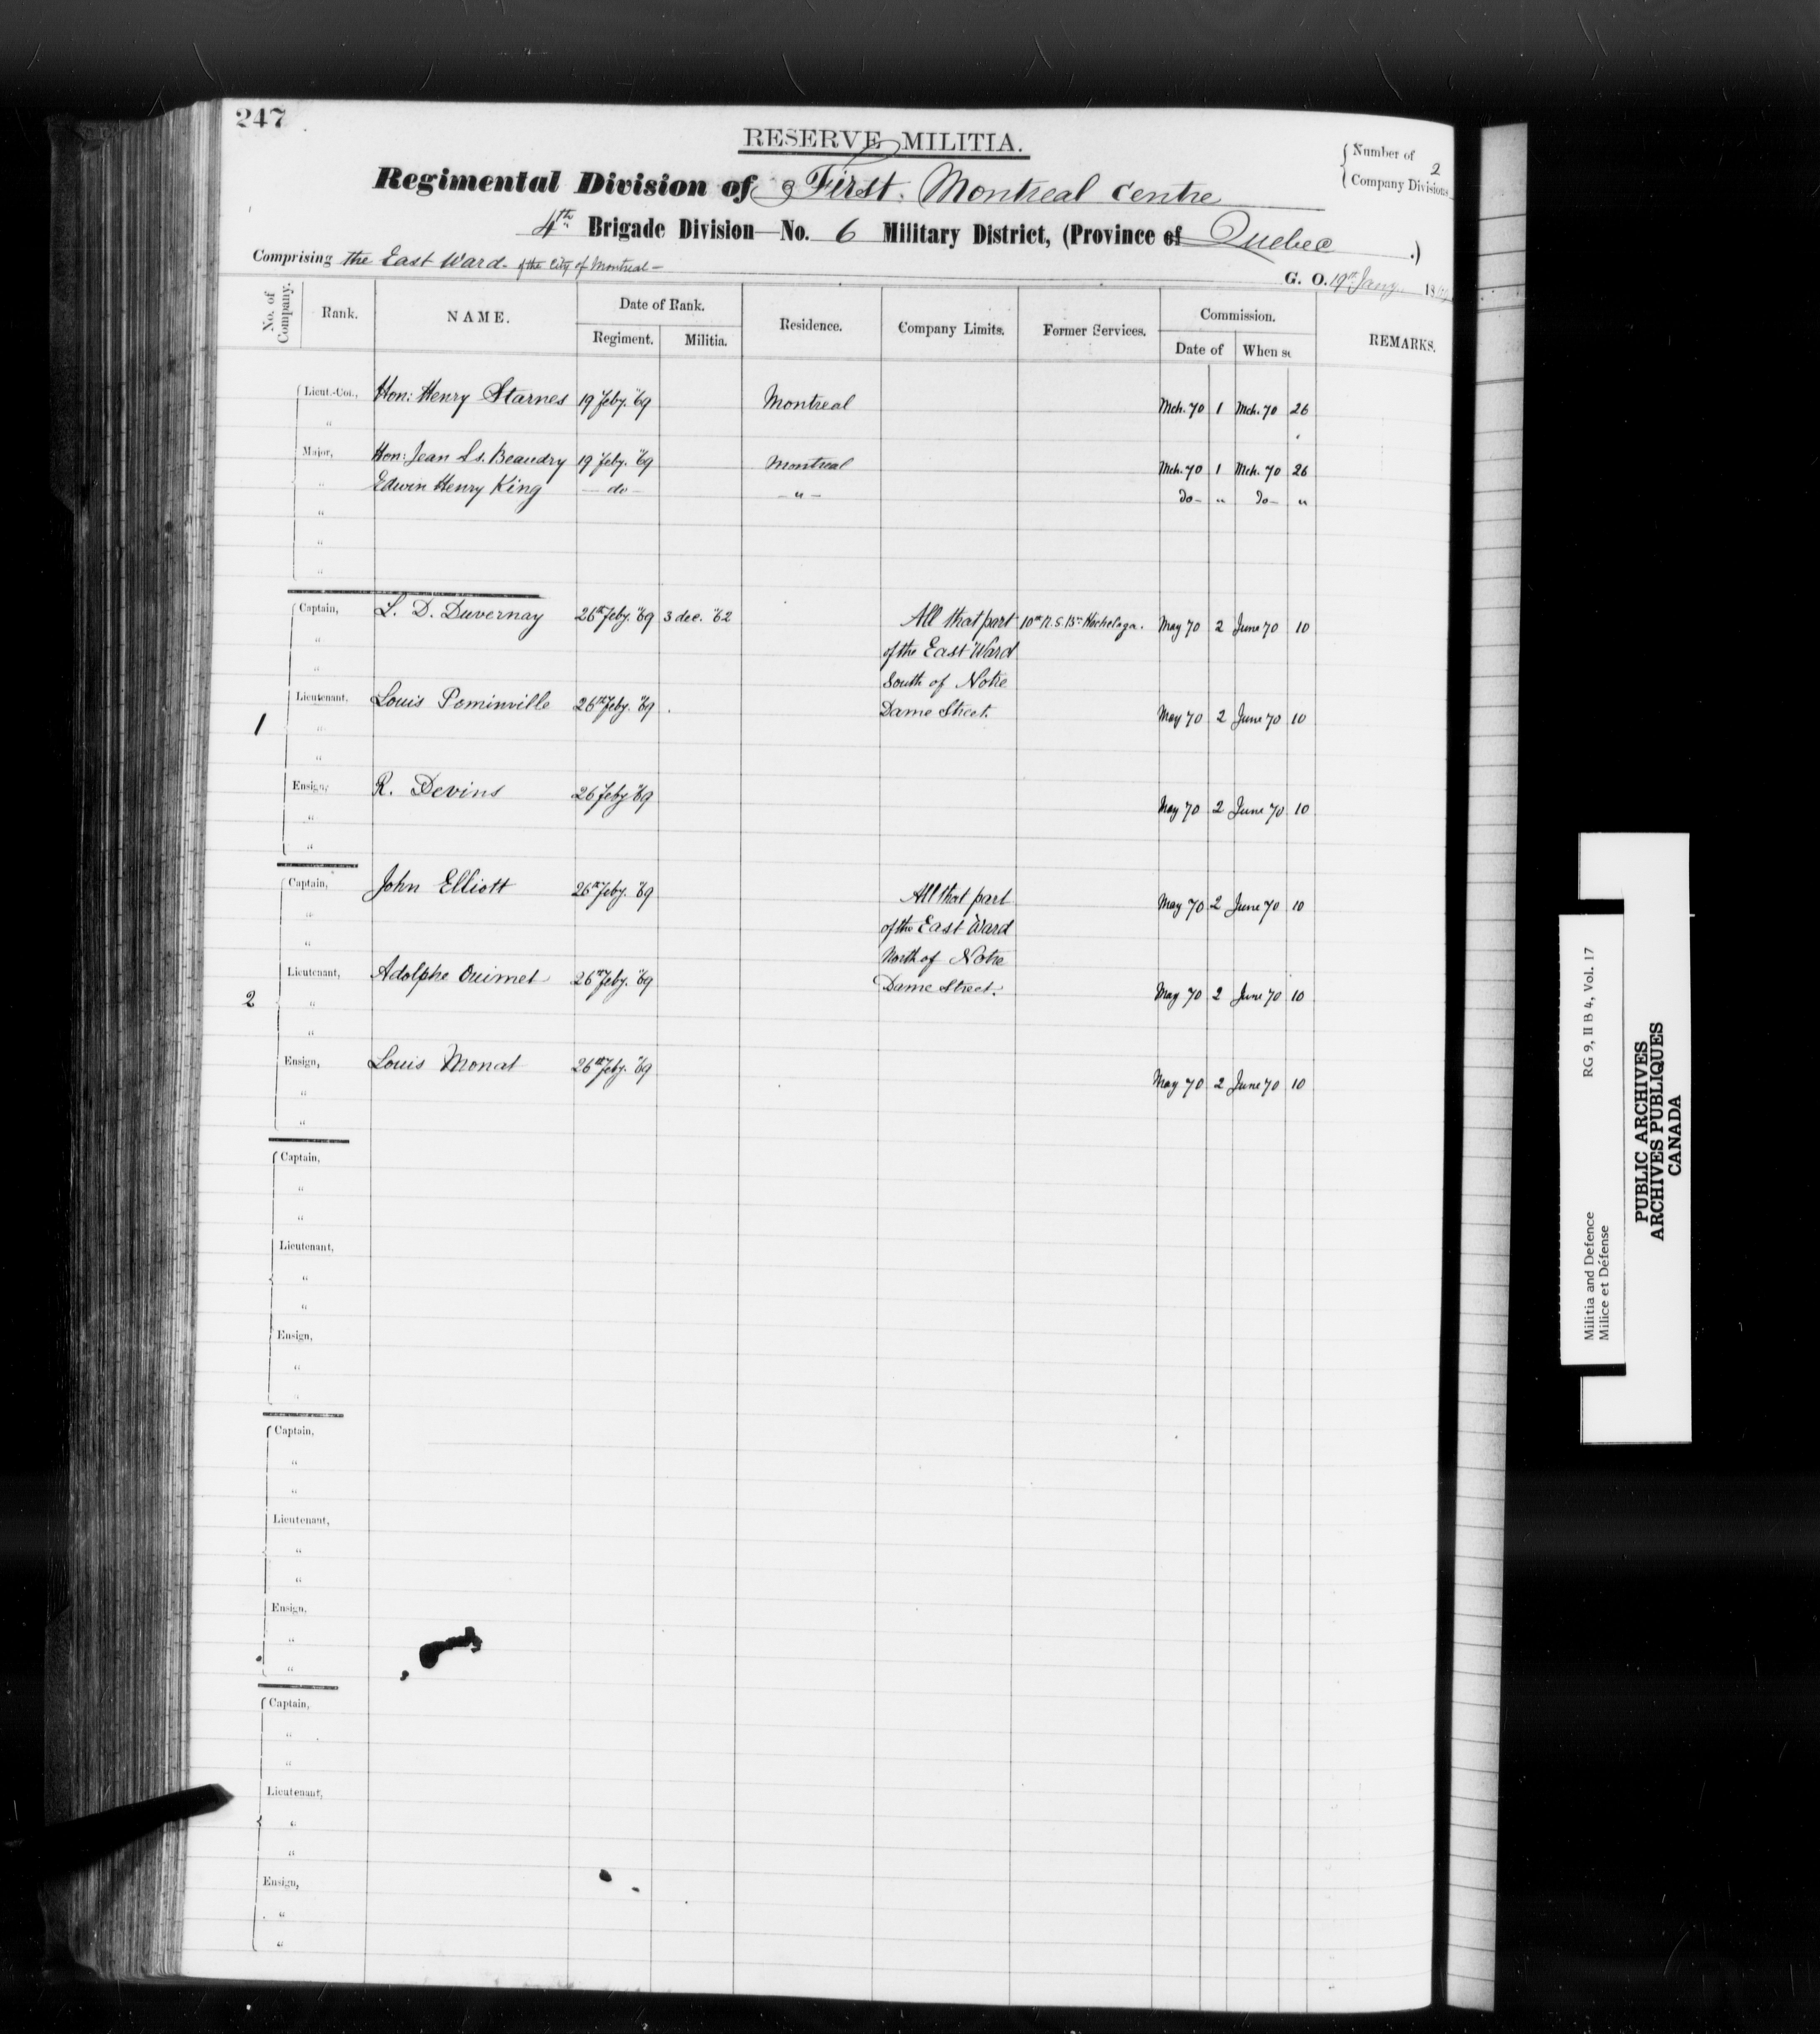 247
RESERVE MILITIA.
{Number of 2 Company Divisions
Regimental Division of First. Montreal Centre
4th Brigade Division—No. 6 Military District, (Province of Quebec .)
Comprising the East Ward - of the City of Montreal -
G. O. 19th Jany. 18
No. of Company. Rank. NAME. Date of Rank. Residence. Company Limits. Former Services. Commission. REMARKS.
Regiment. Militia. Date of When se
Lieut.-Col., Hon: Henry Starnes 19 Feby. "69 Montreal Mch. 70 1 Mch. 70 26
"
Major, Hon: Jean Ls. Beaudry 19 Feby. "69 Montreal Mch. 70 1 Mch. 70 26
" Edwin Henry King — do — — " — Do — " Do — "
"
"
"
Captain, L. D. Duvernay 26th Feby. "69 3 dec. "62 All that part 10th N. S. Bn. Hochelaga. May 70 2 June 70 10
" of the East Ward
" South of Notre
Lieutenant, Louis Pominville 26th Feby. "69 Dame Street. May 70 2 June 70 10
1
"
"
Ensign, R. Devins 26 Feby "69 May 70 2 June 70 10
"
"
Captain, John Elliott 26th Feby. "69 All that part May 70 2 June 70 10
" of the East Ward
" North of Notre
Lieutenant, Adolphe Ouimet 26th Feby. "69 Dame Street. May 70 2 June 70 10
2 "
"
Ensign, Louis Monat 26th Feby. "69 May 70 2 June 70 10
"
"
Captain,
"
"
Lieutenant,
"
"
Ensign,
"
"
Captain,
"
"
Lieutenant,
"
"
Ensign,
"
"
Captain,
"
"
Lieutenant,
"
"
Ensign,
"
"
Militia and Defence RG 9, II B 4, Vol. 17
Milice et Défense
PUBLIC ARCHIVES
ARCHIVES PUBLIQUES
CANADA